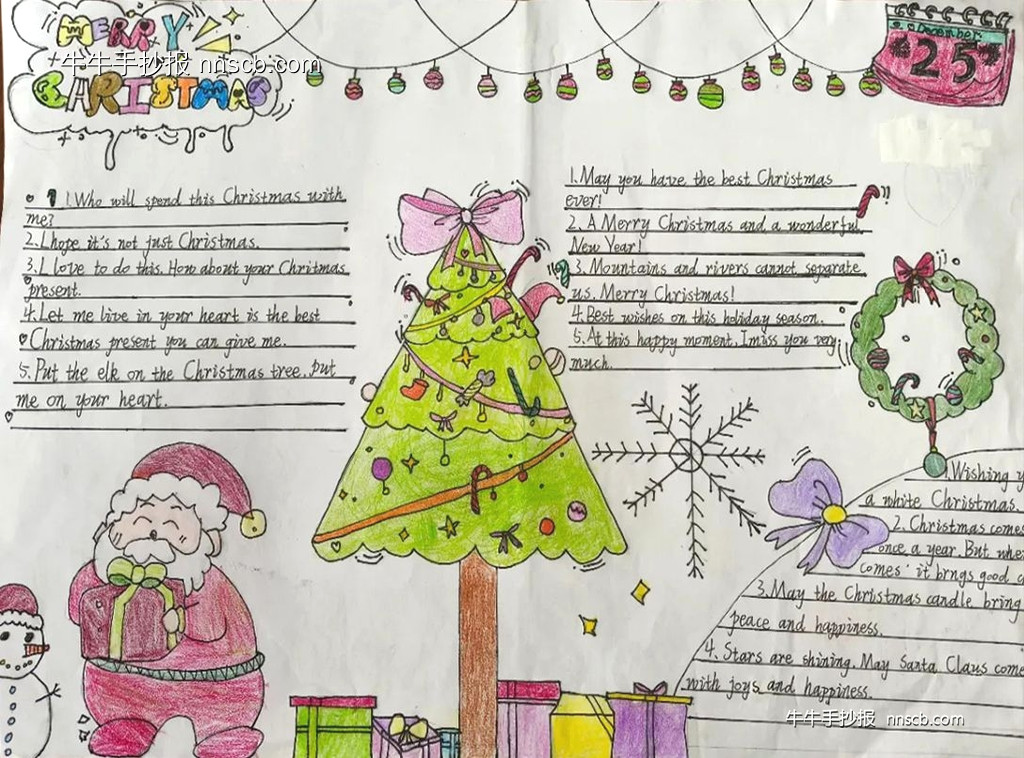 MERRY
牛牛手抄报 nnscb.com
CHRISTMAS
December
"25"
1.Who will spend this Christmas with
me?
2.I hope it's not just Christmas.
3.I love to do this. How about your Chritmas
present.
4.Let me live in your heart is the best
Christmas present you can give me.
5.Put the elk on the Christmas tree, put
me on your heart.
1.May you have the best Christmas
ever!
2.A Merry Christmas and a wonderful
New Year!
3.Mountains and rivers cannot separate
us. Merry Christmas!
4.Best wishes on this holiday season.
5.At this happy moment, I miss you very
much.
1.Wishing
a white Christmas.
2.Christmas comes
once a year. But
comes, it brngs good
3.May the Christmas candle bring
peace and happiness.
4.Stars are shining. May Santa Claus come
with joys and happiness.
牛牛手抄报 nnscb.com